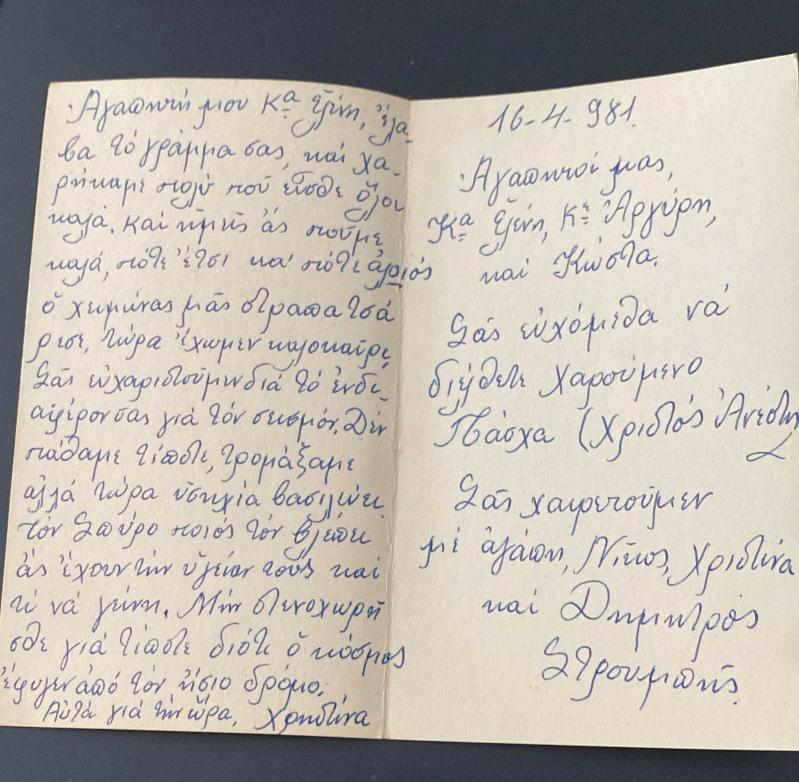 Ἀγαπητή μου Κα Ἑλένη, ἔλα-
βα τό γράμμα σας, καί χα-
ρήκαμε πολύ πού εἶσθε ὅλοι
καλά. Καί ἡμεῖς ἄς ποῦμε
καλά, πότε ἔτσι κα' πότε ἀλοιός
ὁ χειμώνας μᾶς στραπατσά
ρισε, τώρα ἔχωμεν καλοκαῖρι,
Σᾶς εὐχαριστοῦμεν διά τό ἐνδι-
αφέρον σας γιά τόν σεισμόν. Δέν
πάθαμε τίποτε, τρομάξαμε
ἀλλά τώρα ὑσηχία βασιλεύει.
τόν Σπύρο ποιός τόν βλέπει
ἄς ἔχουν τήν ὑγείαν τους καί
τί νά γείνη. Μήν στενοχωρῆ
σθε γιά τίποτε διότι ὁ κόσμος
ἔφυγεν ἀπό τόν ἤσιο δρόμο.
Αὐτά γιά τήν ὥρα. Χρηστίνα
16-4-981.
Ἀγαπητοί μας,
Κα Ἑλένη, Κε Ἀργύρη,
καί Κώστα.
Σᾶς εὐχόμεθα νά
διέλθετε χαρούμενο
Πάσχα (Χριστός Ἀνέστη
Σᾶς χαιρετοῦμεν
μέ ἀγάπη, Νῖκος, Χριστίνα
καί Δημητρός
Στρουμπῆς.